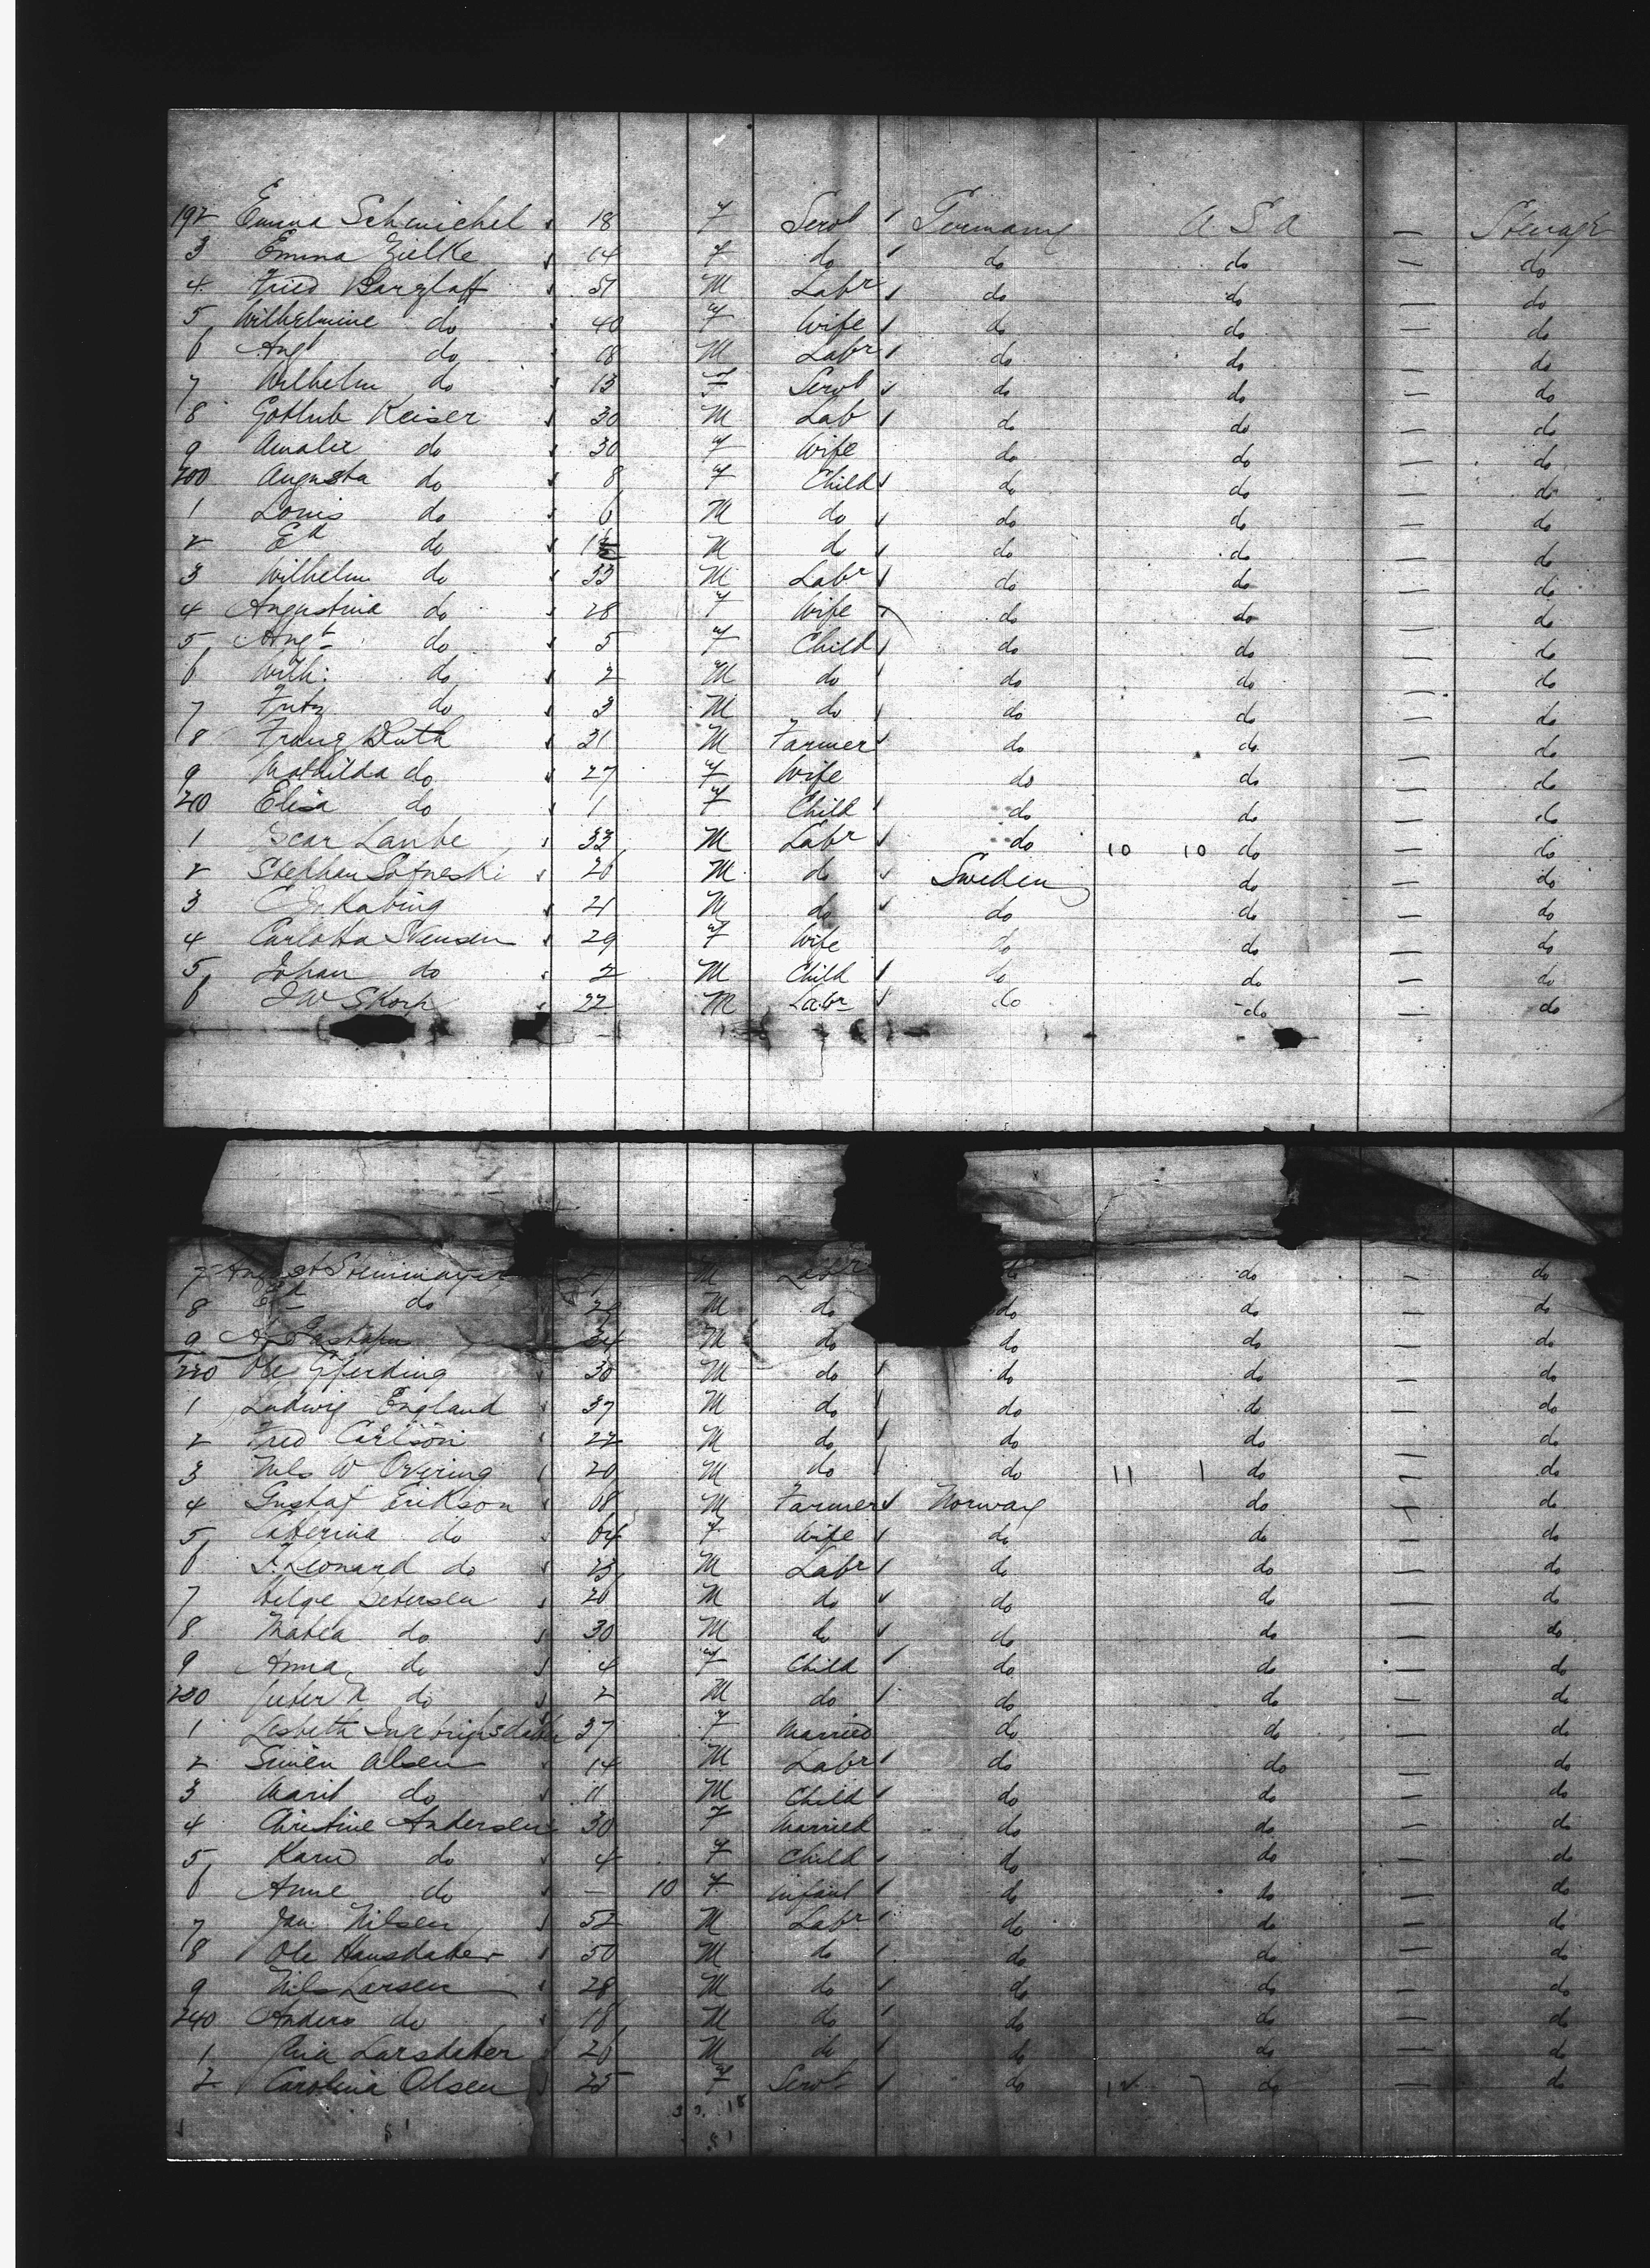 192 Emma Schmichel 18 F Servt Germany U S A — Steerage
3 Emma Zielke 14 F do do do — do
4 Fried Barzlaff 51 M Labr do do — do
5 Wilhelmine do 40 F Wife do do — do
6 Augt do 18 M Labr do do — do
7 Wilhelm do 13 F Servt do do — do
8 Gottlieb Keiser 30 M Lab do do — do
9 Amalie do 30 F Wife do do — do
200 Augusta do 8 F Child do do — do
1 Louis do 6 M do do do — do
2 Ed do M do do do — do
3 Wilhelm do 33 M Labr do do — do
4 Augustina do 28 F Wife do do — do
5 Augt do 5 F Child do do — do
6 Wilh: do 2 M do do do — do
7 Fritz do 3 M do do do — do
8 Franz Duth 31 M Farmer do do — do
9 Mathilda do 27 F Wife do do — do
210 Elisa do 1 F Child do do — do
1 Oscar Lanbe 33 M Labr do 10 10 do — do
2 Stephan Sotneski 26 M do Sweden do — do
3 Kabing 21 M do do do — do
4 Carlotta Svensen 29 F Wife do do — do
5 Johan do 2 M Child do do — do
6 J W Skorp 22 M Labr do do — do
7 August Steinmayer M Labr do do — do
8 Ed do 29 M do do do — do
9 34 M do do do — do
220 Ole Gjerding 30 M do do do — do
1 Ludwig England 37 M do do do — do
2 Fred Carlson 22 M do do do — do
3 Nels W Overing 20 M do do 11 1 do — do
4 Gustaf Erikson 68 M Farmer Norway do — do
5 Catterina do 64 F Wife do do — do
6 F. Leonard do 23 M Labr do do — do
7 Helge Petersen 20 M do do do — do
8 Mathea do 30 M do do do — do
9 Anna do 4 F Child do do — do
230 Peter N do 2 M do do do — do
1 Lisbeth Ingebrigtsdatter 37 F Married do do — do
2 Simen Olsen 14 M Labr do do — do
3 Marit do 11 M Child do do — do
4 Christine Andersen 30 F Married do do — do
5 Karn do 4 F Child do do — do
6 Anne do — 10 F Infant do do — do
7 Jan Nilsen 52 M Labr do do — do
8 Ole Hansdatter 50 M do do do — do
9 Nils Larsen 28 M do do do — do
240 Anders do 18 M do do do — do
1 Larsdatter 26 M do do do — do
2 Carolina Olsen 25 F Servt do 12 7 do — do